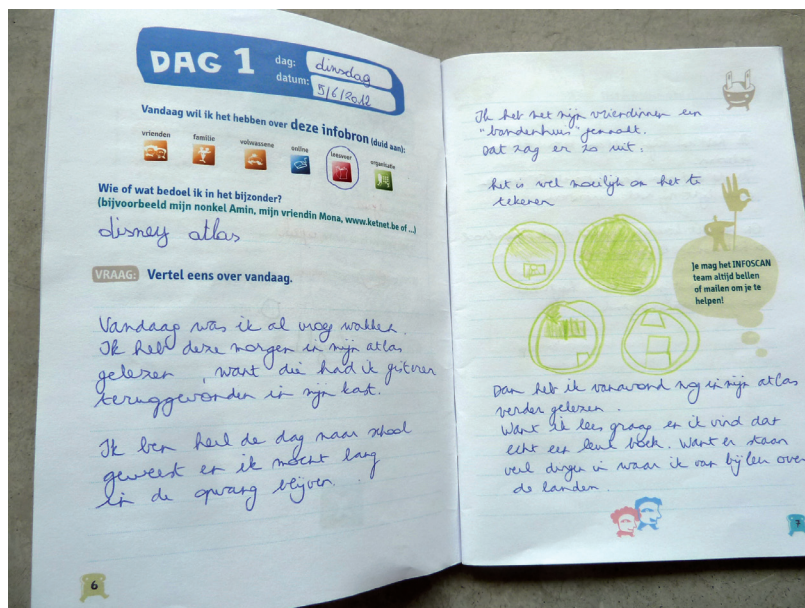 DAG 1
dag: dinsdag
datum: 5/6/2012
Vandaag wil ik het hebben over deze infobron (duid aan):
vrienden familie volwassene online leesvoer organisatie
Wie of wat bedoel ik in het bijzonder?
(bijvoorbeeld mijn nonkel Amin, mijn vriendin Mona, www.ketnet.be of ...)
disney atlas
VRAAG: Vertel eens over vandaag.
Vandaag was ik al vroeg wakker.
Ik heb deze morgen in mijn atlas
gelezen, want die had ik gisteren
teruggevonden in mijn kast.
Ik ben heel de dag naar school
geweest en ik mocht lang
in de opvang blijven.
6
Ik heb met mijn vriendinnen een
"bandenhuis" gemaakt.
Dat zag er zo uit:
het is wel moeilijk om het te
tekenen
Je mag het INFOSCAN
team altijd bellen
of mailen om je te
helpen!
Dan heb ik vanavond nog in mijn atlas
verder gelezen.
Want ik lees graag en ik vind dat
echt een leuk boek. Want er staan
veel dingen in waar ik van bij leer over
de landen.
7